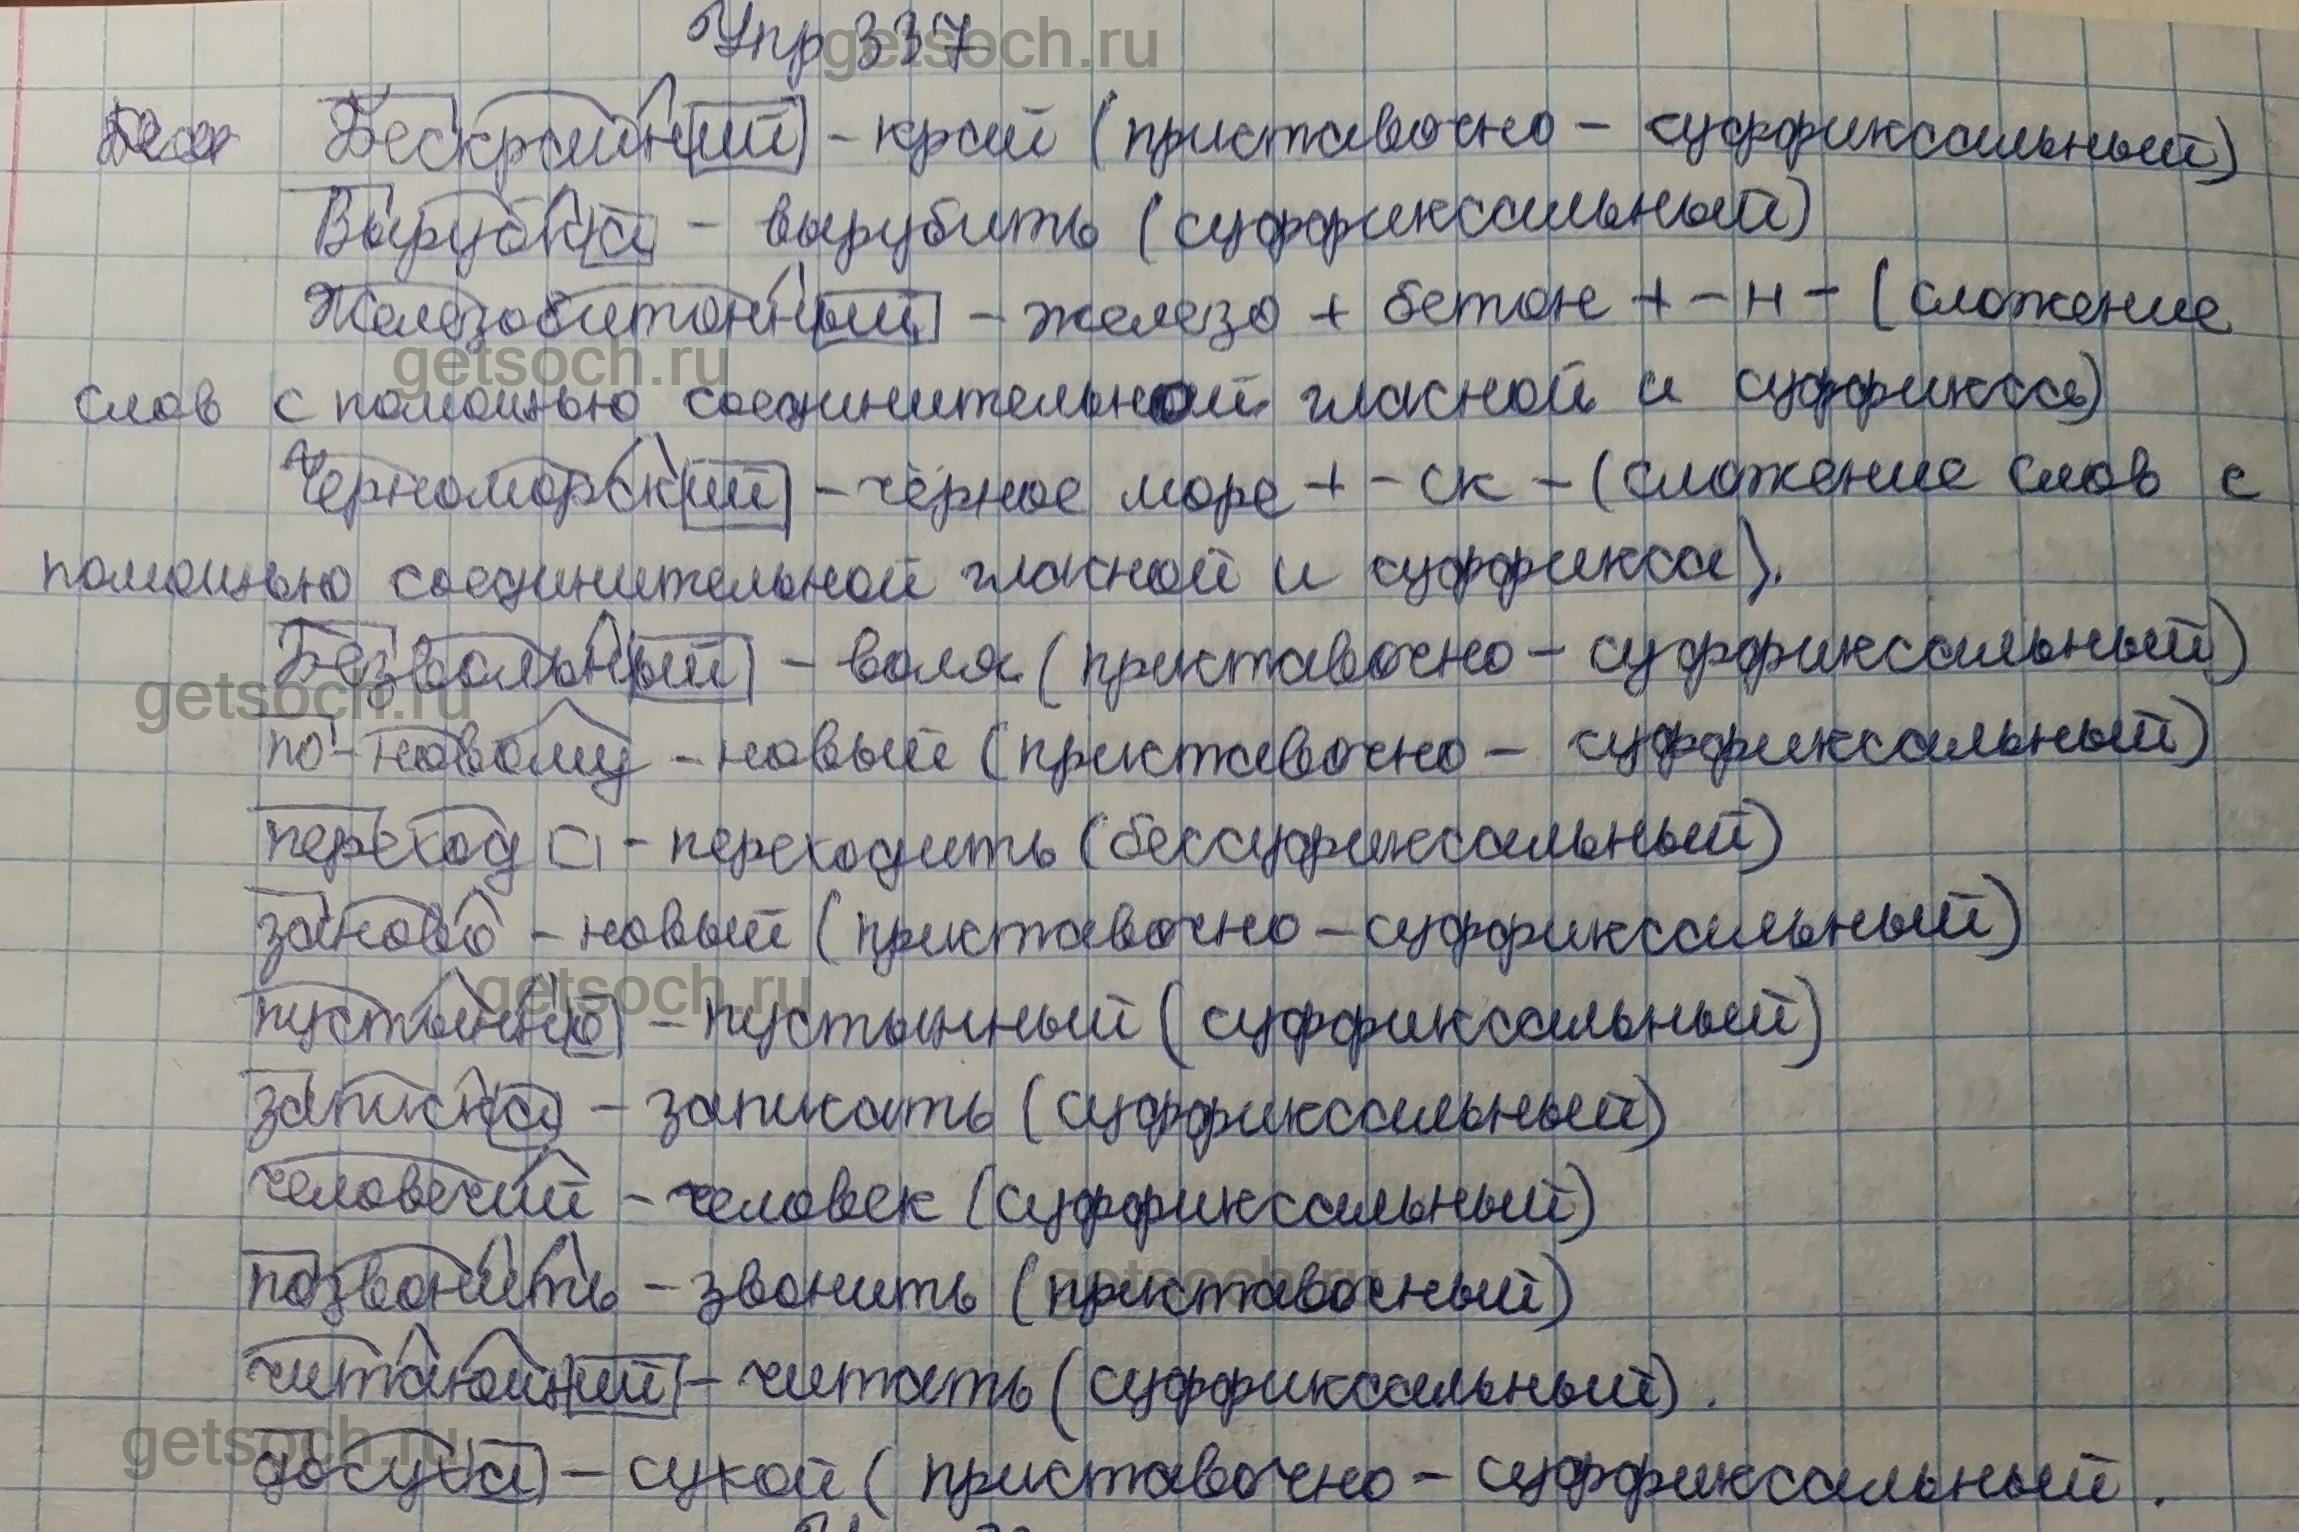 Упр 337
Бескрайний - край (приставочно - суффиксальный)
Вырубка - вырубить (суффиксальный)
Железобитонный - железо + бетон + - н - (сложение
слов с помощью соединительной гласной и суффикса)
Черноморский - чёрное море + - ск - (сложение слов с
помощью соединительной гласной и суффикса).
Безвольный - воля (приставочно - суффиксальный)
по-новому - новый (приставочно - суффиксальный)
переход - переходить (бессуфиксальный)
заново - новый (приставочно - суффиксальный)
пустынно - пустынный (суффиксальный)
записка - записать (суффиксальный)
человечий - человек (суффиксальный)
позвонить - звонить (приставочный)
читающий - читать (суффиксальный).
досуха - сухой (приставочно - суффиксальный.
getsoch.ru
getsoch.ru
getsoch.ru
getsoch.ru
getsoch.ru
getsoch.ru